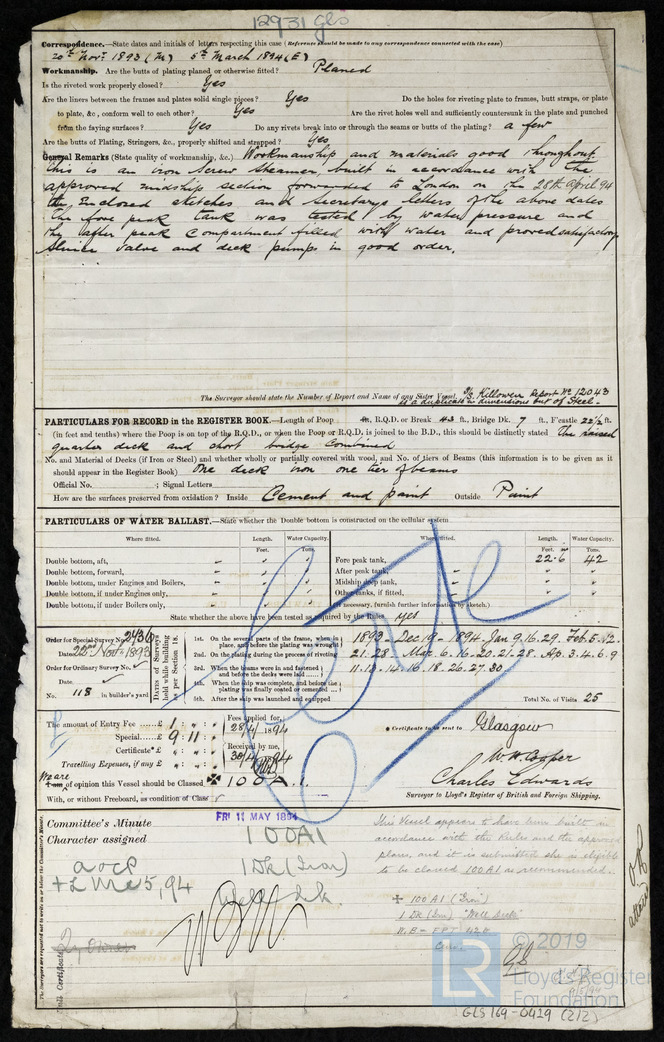 12931 gls
Correspondence.—State dates and initials of letters respecting this case (Reference should be made to any correspondence connected with the case)
20th Novr 1893 (M) 5th March 1894 (E)
Workmanship. Are the butts of plating planed or otherwise fitted? Planed
Is the riveted work properly closed? Yes
Are the liners between the frames and plates solid single pieces? Yes Do the holes for riveting plate to frames, butt straps, or plate
to plate, &c., conform well to each other? Yes Are the rivet holes well and sufficiently countersunk in the plate and punched
from the faying surfaces? Yes Do any rivets break into or through the seams or butts of the plating? a few
Are the butts of Plating, Stringers, &c., properly shifted and strapped? Yes
General Remarks (State quality of workmanship, &c.) Workmanship and materials good throughout.
This is an iron Screw Steamer, built in accordance with the
approved midship section forwarded to London on the 28th April 94
the Enclosed sketches and Secretarys letters of the above dates
The fore peak tank was tested by water pressure and
the after peak compartment filled with water and proved satisfactory
Sluice valve and deck pumps in good order.
The Surveyor should state the Number of Report and Name of any Sister Vessel. S/S Killowen Report No 12043
is a duplicate in dimensions but of Steel.
PARTICULARS FOR RECORD in the REGISTER BOOK.—Length of Poop ft., R.Q.D. or Break 43 ft., Bridge Dk. 7 ft., F'castle 22½ ft.
(in feet and tenths) where the Poop is on top of the R.Q.D., or when the Poop or R.Q.D. is joined to the B.D., this should be distinctly stated The raised
quarter deck and short bridge combined
No. and Material of Decks (if Iron or Steel) and whether wholly or partially covered with wood, and No. of tiers of Beams (this information is to be given as it
should appear in the Register Book) One deck iron one tier of beams
Official No. ; Signal Letters
How are the surfaces preserved from oxidation? Inside Cement and paint Outside Paint
PARTICULARS OF WATER BALLAST.—State whether the Double bottom is constructed on the cellular system
Where fitted. Length. Water Capacity. Where fitted. Length. Water Capacity.
Feet. Tons. Feet. Tons.
Double bottom, aft, Fore peak tank, 22.6 42
Double bottom, forward, After peak tank,
Double bottom, under Engines and Boilers, Midship deep tank,
Double bottom, if under Engines only, Other tanks, if fitted,
Double bottom, if under Boilers only, (If necessary, furnish further information by sketch.)
State whether the above have been tested as required by the Rules Yes
Order for Special Survey No. 2436
Date 22nd Novr 1893
Order for Ordinary Survey No.
Date
No. 118 in builder's yard
Dates of Surveys held while building as per Section 18.
1st. On the several parts of the frame, when in place, and before the plating was wrought 1893 - Dec 19 - 1894 - Jan 9.16.29. Feb. 5.12.
2nd. On the plating during the process of riveting 21.28. Mar. 6.16.20.21.28. Ap. 3.4.6.9
3rd. When the beams were in and fastened, and before the decks were laid 11.13.14.16.18.26.27.30
4th. When the ship was complete, and before the plating was finally coated or cemented
5th. After the ship was launched and equipped Total No. of Visits 25
The amount of Entry Fee £ 1 : " : "
Special £ 9 : 11 : "
Certificate £ " : " : "
Travelling Expenses, if any £
Fees applied for, 28/4/1894
Received by me, 30/4/1894
Certificate to be sent to Glasgow
W. H. Cooper
Charles Edwards
Surveyor to Lloyd's Register of British and Foreign Shipping.
We are
I am of opinion this Vessel should be Classed ✠ 100 A.1.
With, or without Freeboard, as condition of Class
FRI 11 MAY 1894
Committee's Minute
Character assigned
100A1
1 Dk (Iron)
Well dk.
+ LMC 5,94
This Vessel appears to have been built in
accordance with the Rules and the approved
plans, and it is submitted she is eligible
to be classed 100A1 as recommended.
✠ 100 A1 (Iron)
1 Dk (Iron) "Well Deck"
The Surveyors are requested not to write on or below the Committee's Minute.
LR
© 2019
Lloyd's Register
Foundation
GLS 169-0429 (2/2)